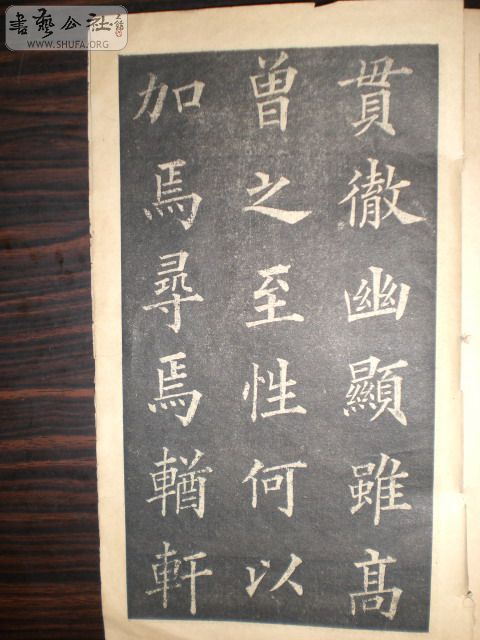 書藝公社
WWW.SHUFA.ORG
貫徹幽顯雖髙
曾之至性何以
加焉尋焉輶軒